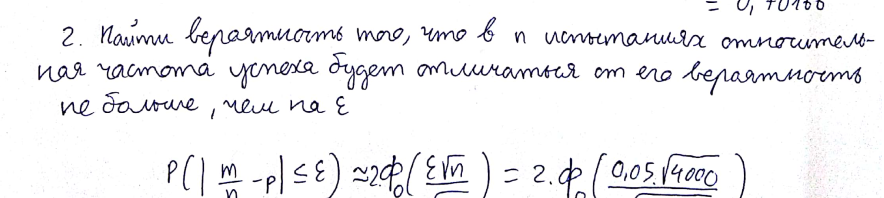 = 0,70166
2. Найти вероятность того, что в n испытаниях относитель-
ная частота успеха будет отличаться от его вероятность
не больше, чем на ε
P(| m/n -p| ≤ ε) ≈ 2Ф₀( ε√n ) = 2.Ф₀( 0,05.√4000 )